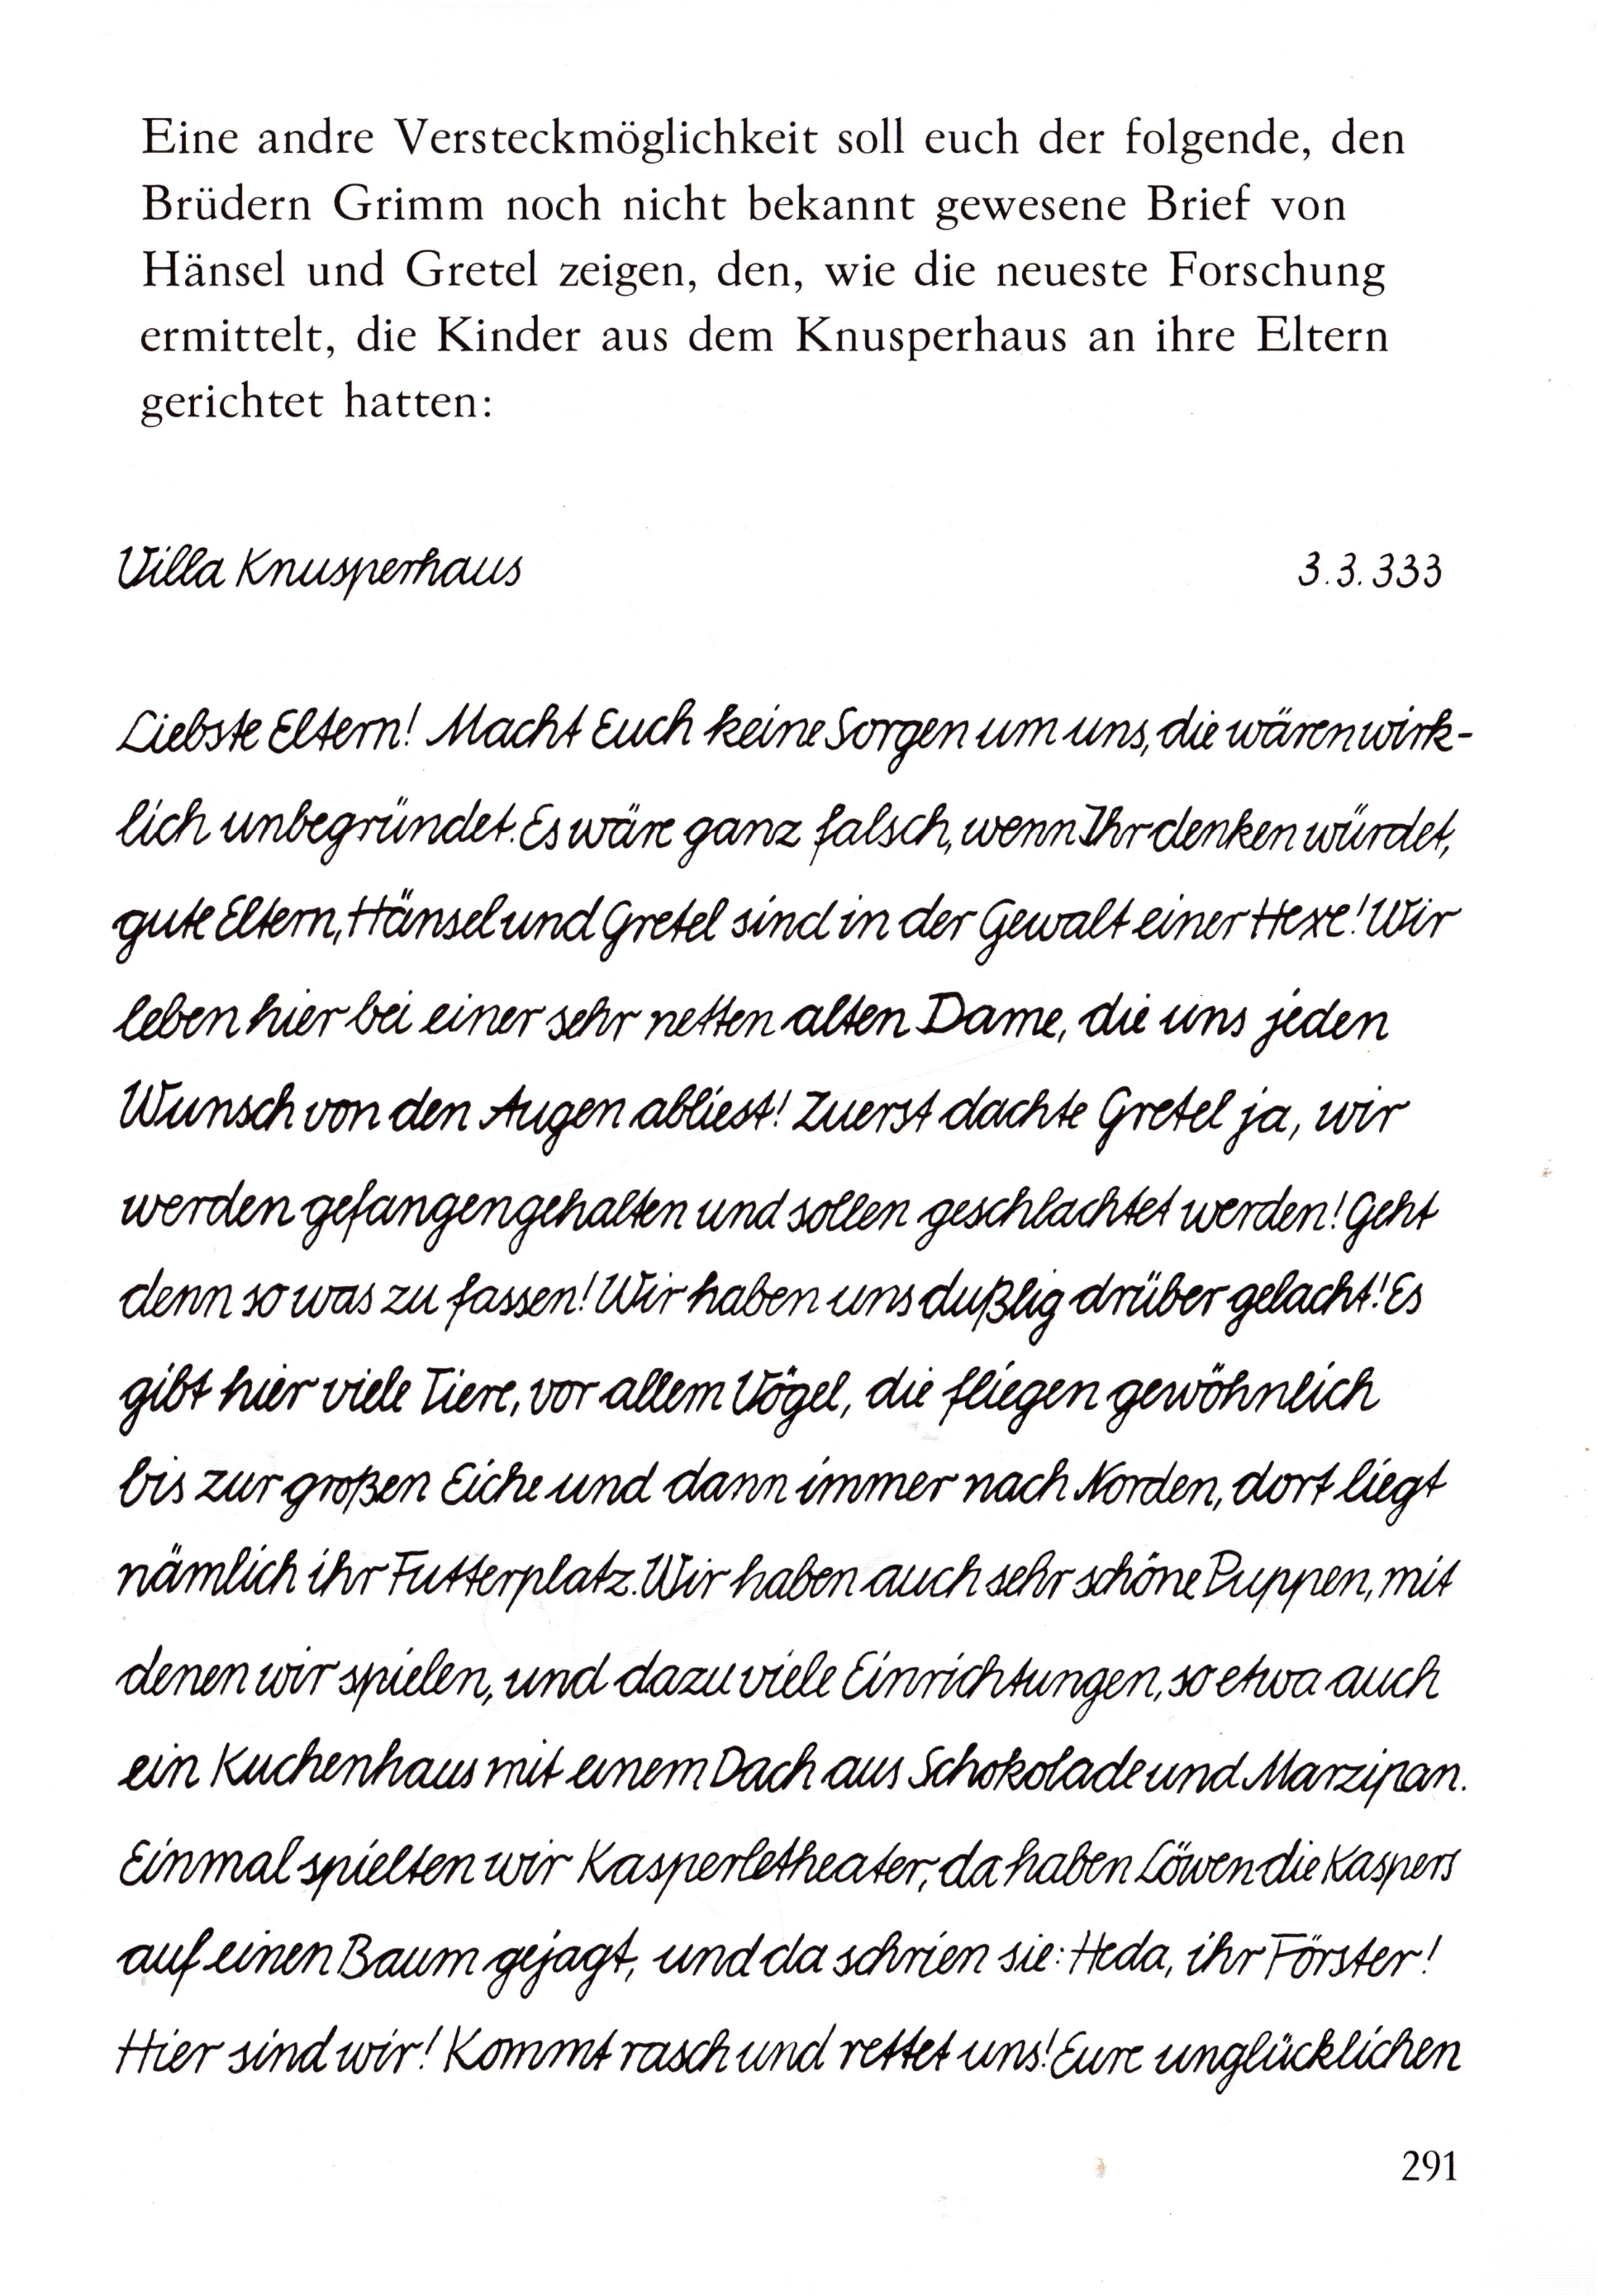 Eine andre Versteckmöglichkeit soll euch der folgende, den
Brüdern Grimm noch nicht bekannt gewesene Brief von
Hänsel und Gretel zeigen, den, wie die neueste Forschung
ermittelt, die Kinder aus dem Knusperhaus an ihre Eltern
gerichtet hatten:
Villa Knusperhaus 3.3.333
Liebste Eltern! Macht Euch keine Sorgen um uns, die wären wirk-
lich unbegründet. Es wäre ganz falsch, wenn Ihr denken würdet,
gute Eltern, Hänsel und Gretel sind in der Gewalt einer Hexe! Wir
leben hier bei einer sehr netten alten Dame, die uns jeden
Wunsch von den Augen abliest! Zuerst dachte Gretel ja, wir
werden gefangengehalten und sollen geschlachtet werden! Geht
denn so was zu fassen! Wir haben uns dußlig drüber gelacht! Es
gibt hier viele Tiere, vor allem Vögel, die fliegen gewöhnlich
bis zur großen Eiche und dann immer nach Norden, dort liegt
nämlich ihr Futterplatz. Wir haben auch sehr schöne Puppen, mit
denen wir spielen, und dazu viele Einrichtungen, so etwa auch
ein Kuchenhaus mit einem Dach aus Schokolade und Marzipan.
Einmal spielten wir Kasperletheater, da haben Löwen die Kaspers
auf einen Baum gejagt, und da schrien sie: Heda, ihr Förster!
Hier sind wir! Kommt rasch und rettet uns! Eure unglücklichen
291